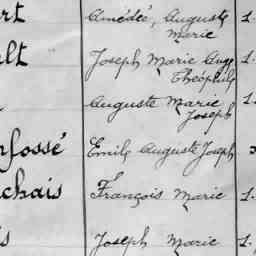 rt Amédée, Auguste 1.
Marie
lt Joseph Marie Ange
Théophile
Auguste Marie 1.
Joseph
nfossé Emile Auguste Joseph
chais François Marie 1.
is Joseph Marie 1.